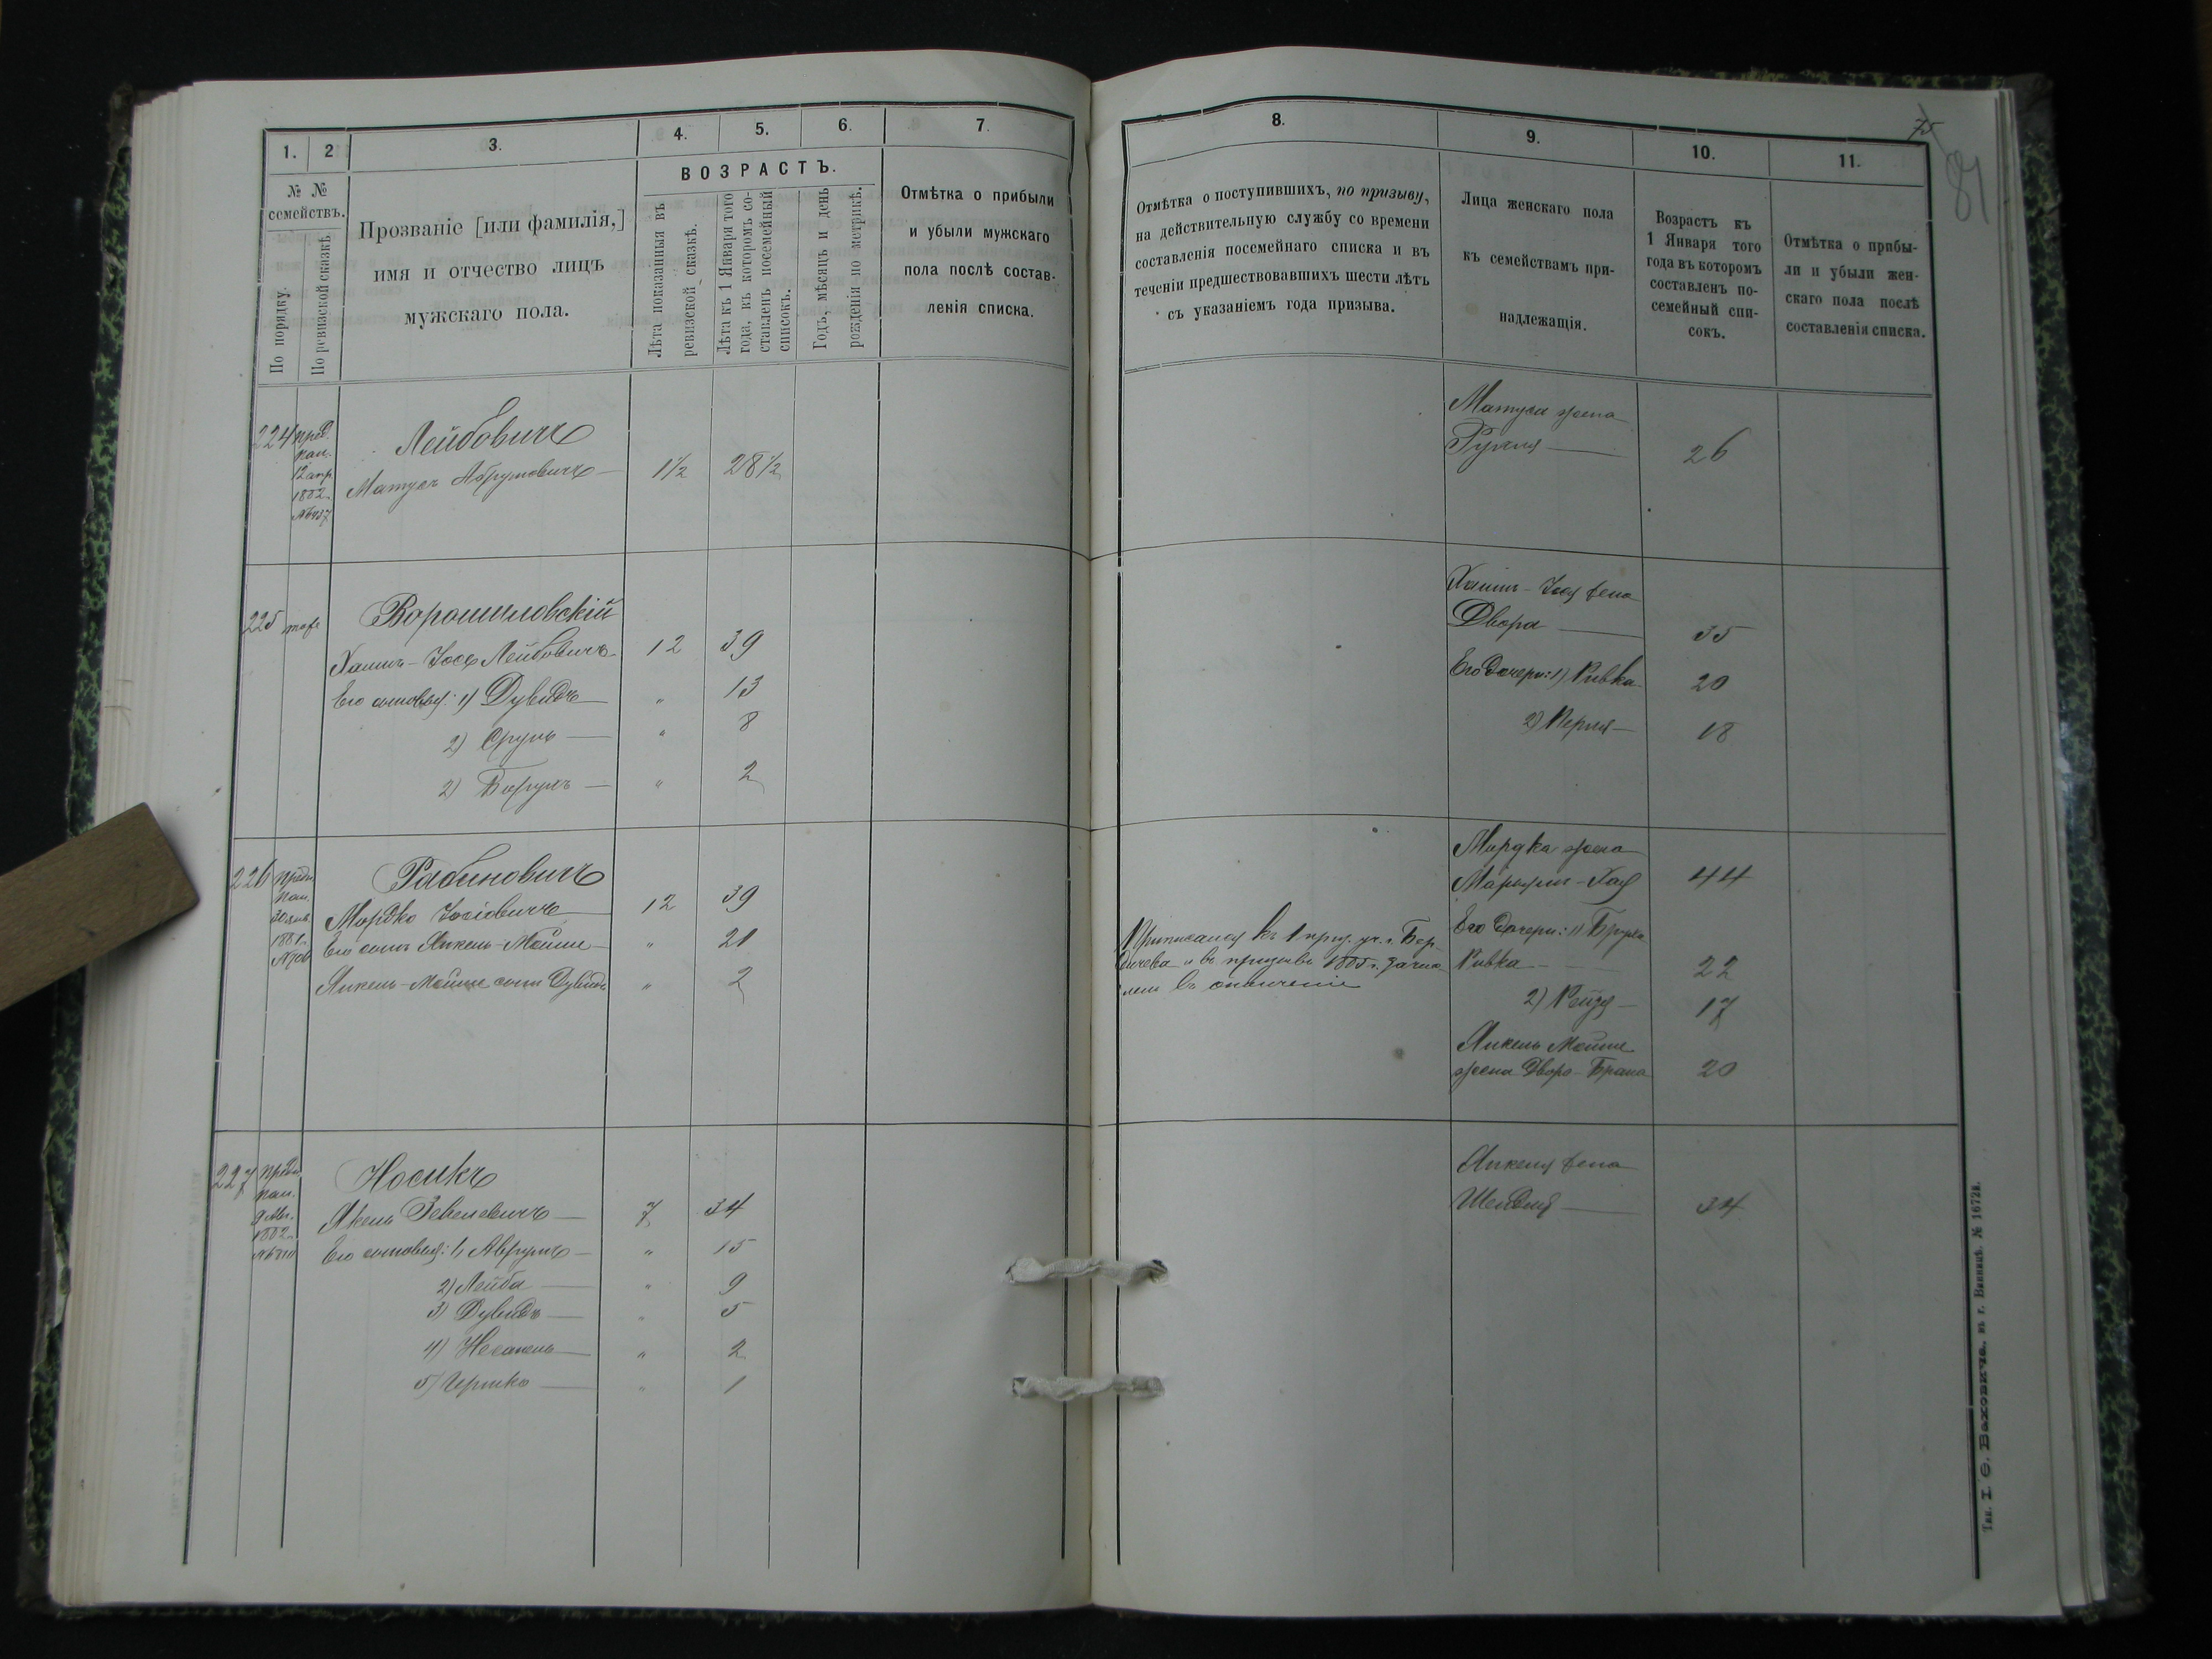 1.
2
3.
4.
5.
6.
7.
№ №
семействъ.
По порядку.
По ревизской сказкѣ
Прозваніе [или фамилія,]
имя и отчество лицъ
мужскаго пола.
ВОЗРАСТЪ.
Лѣта показанныя въ
ревизской сказкѣ.
Лѣта къ 1 Января того
года, въ которомъ со-
ставленъ посемейный
списокъ.
Годъ, мѣсяцъ и день
рожденія по метрикѣ.
Отмѣтка о прибыли
и убыли мужскаго
пола послѣ состав-
ленія списка.
224 пред.
пал.
12 апр.
1882
Лейбовичъ
Матусъ Абрумовичъ 1½ 28½
225 тоже
Ворошиловскій
Хаимъ-Іось Лейбовичъ 12 39
Его сыновья: 1) Дувидъ " 13
2) Сруль " 8
2) Борухъ " 2
226 предп.
пал.
30 янв.
1881
Рабиновичъ
Мордко Іосіовичъ 12 39
Его сынъ Янкель-Мойше " 21
Янкель-Мойше сынъ Дувидъ " 2
227 предп.
пал.
1882
Носикъ
Якель Зевелевичъ 7 34
Его сыновья: 1) Аврумъ " 15
2) Лейба " 9
3) Дувидъ " 5
4) " 2
5) Гершко " 1
8.
9.
10.
11.
75
81
Отмѣтка о поступившихъ, по призыву,
на дѣйствительную службу со времени
составленія посемейнаго списка и въ
теченіи предшествовавшихъ шести лѣтъ
съ указаніемъ года призыва.
Лица женскаго пола
къ семействамъ при-
надлежащія.
Возрастъ къ
1 Января того
года въ которомъ
составленъ по-
семейный спи-
сокъ.
Отмѣтка о прибы-
ли и убыли жен-
скаго пола послѣ
составленія списка.
Матуса жена
Рухля 26
Хаимъ-Іося жена
Двора 35
Его дочери: 1) Ривка 20
2) Перля 18
Мордка жена
Марьям-Хая 44
Его дочери: 1) Бруха
Ривка 22
2) Рейзя 17
Янкель Мойше
жена Двора-Брана 20
Приписался къ 1 приз. уч. г. Бер-
дичева и въ призывъ 1885 г. зачис-
ленъ въ ополченіе
Янкеля жена
Шейндля 34
Тип. І. Ѳ. Баховича. въ г. Винницѣ. № 1672в.